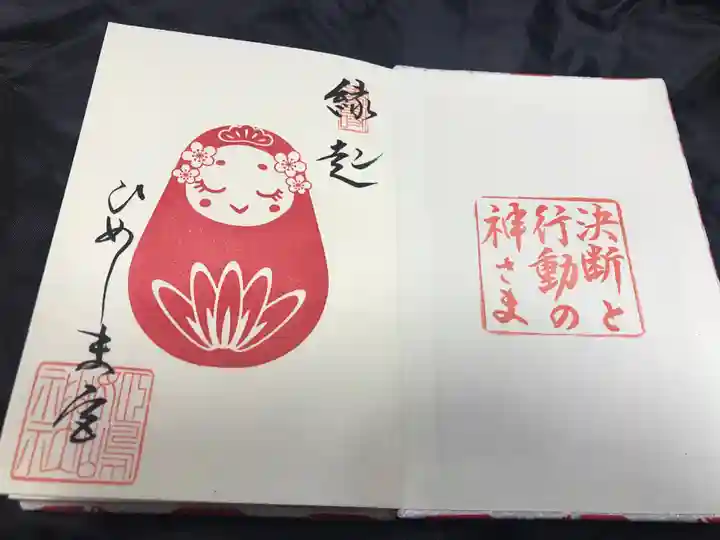 決断と
行動の
神さま
縁起
ひめしま宮